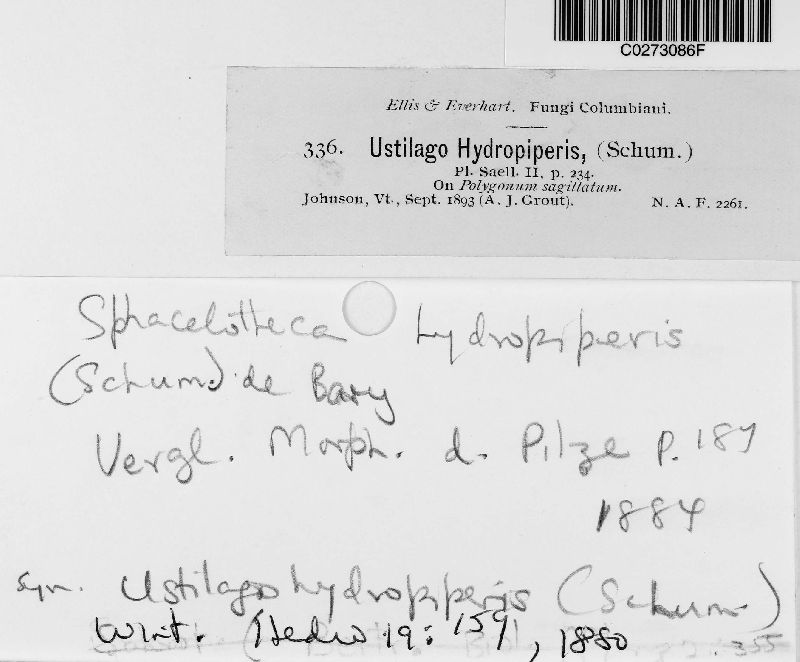 C0273086F
Ellis & Everhart. Fungi Columbiani.
336. Ustilago Hydropiperis, (Schum.)
Pl. Saell. II, p. 234.
On Polygonum sagillatum.
Johnson, Vt., Sept. 1893 (A. J. Grout). N. A. F. 2261.
Sphacelotheca hydropiperis
(Schum.) de Bary
Vergl. Morph. d. Pilze p. 187
1884
syn. Ustilago hydropiperis (Schum.)
Wint. (Hedw 19: 159, 1880
355